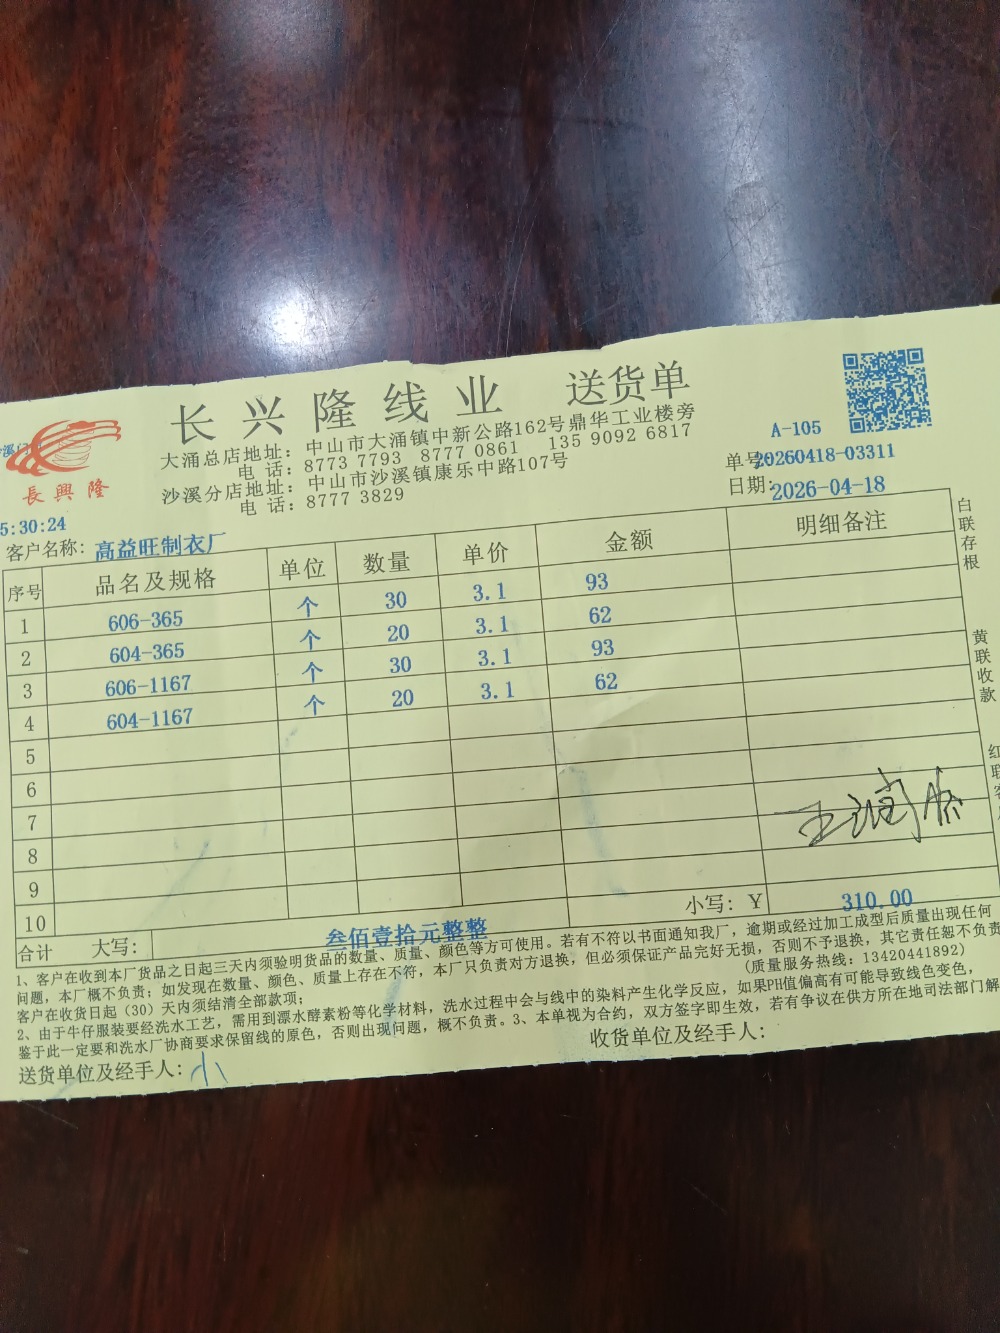 长兴隆线业 送货单
大涌总店地址: 中山市大涌镇中新公路162号鼎华工业楼旁
电 话: 8773 7793 8777 0861 135 9092 6817
沙溪分店地址: 中山市沙溪镇康乐中路107号
电 话: 8777 3829
長興隆
A-105
单号:20260418-03311
日期:2026-04-18
5:30:24
客户名称: 高益旺制衣厂
序号 品名及规格 单位 数量 单价 金额 明细备注
1 606-365 个 30 3.1 93
2 604-365 个 20 3.1 62
3 606-1167 个 30 3.1 93
4 604-1167 个 20 3.1 62
5
6
7
8
9
10
合计 大写: 叁佰壹拾元整整 小写: Y 310.00
1、客户在收到本厂货品之日起三天内须验明货品的数量、质量、颜色等方可使用。若有不符以书面通知我厂，逾期或经过加工成型后质量出现任何
问题，本厂概不负责；如发现在数量、颜色、质量上存在不符，本厂只负责对方退换，但必须保证产品完好无损，否则不予退换，其它责任恕不负责
客户在收货日起（30）天内须结清全部款项； (质量服务热线: 13420441892)
2、由于牛仔服装要经洗水工艺，需用到漂水酵素粉等化学材料，洗水过程中会与线中的染料产生化学反应，如果PH值偏高有可能导致线色变色，
鉴于此一定要和洗水厂协商要求保留线的原色，否则出现问题，概不负责。3、本单视为合约，双方签字即生效，若有争议在供方所在地司法部门解
送货单位及经手人: 小 收货单位及经手人:
白联存根
黄联收款
红联客